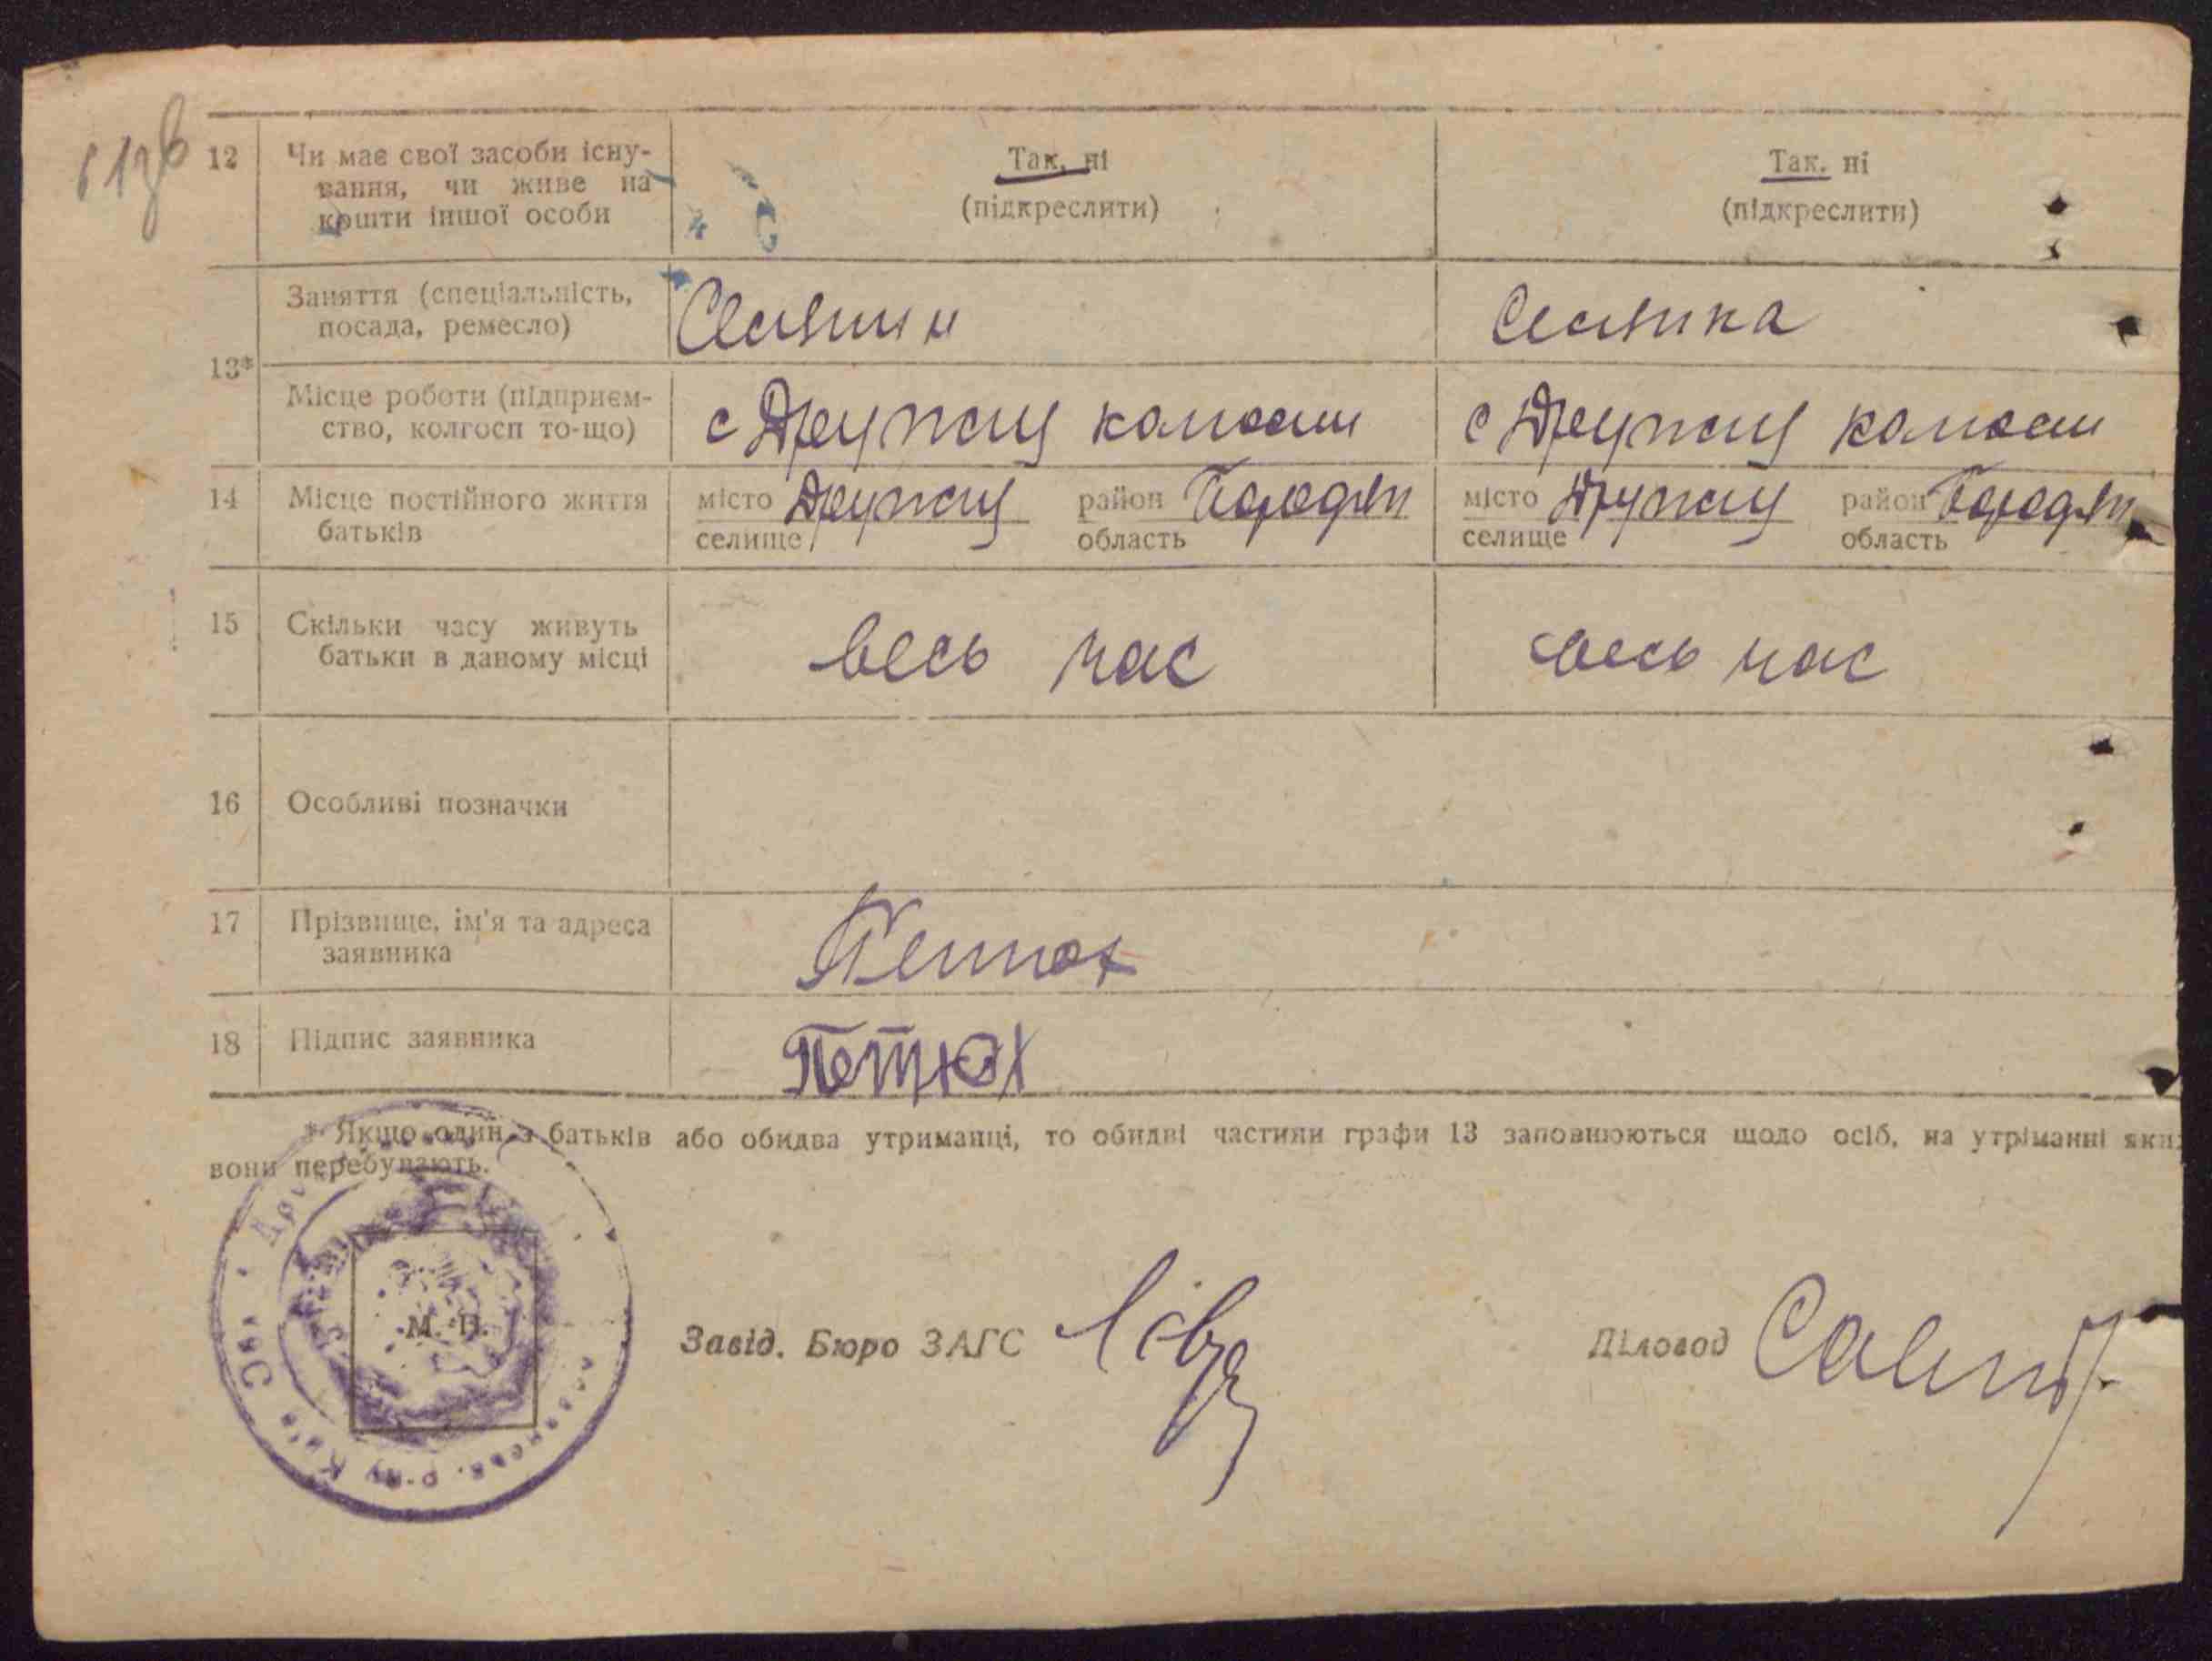 12 Чи має свої засоби існу-
вання, чи живе на
кошти іншої особи
Так, ні
(підкреслити)
Так. ні
(підкреслити)
13*
Заняття (спеціальність,
посада, ремесло)
Селянин
Селянка
Місце роботи (підприєм-
ство, колгосп то-що)
с Дружу
с Дружу
14 Місце постійного життя
батьків
місто Дружу район
селище область
місто Дружу район
селище область
15 Скільки часу живуть
батьки в даному місці
весь час
весь час
16 Особливі позначки
17 Прізвище, ім'я та адреса
заявника
Петюх
18 Підпис заявника
Петюх
* Якщо один з батьків або обидва утриманці, то обидві частини графи 13 заповнюються щодо осіб, на утріманні яких
вони перебувають.
М. П.
Завід. Бюро ЗАГС
Діловод